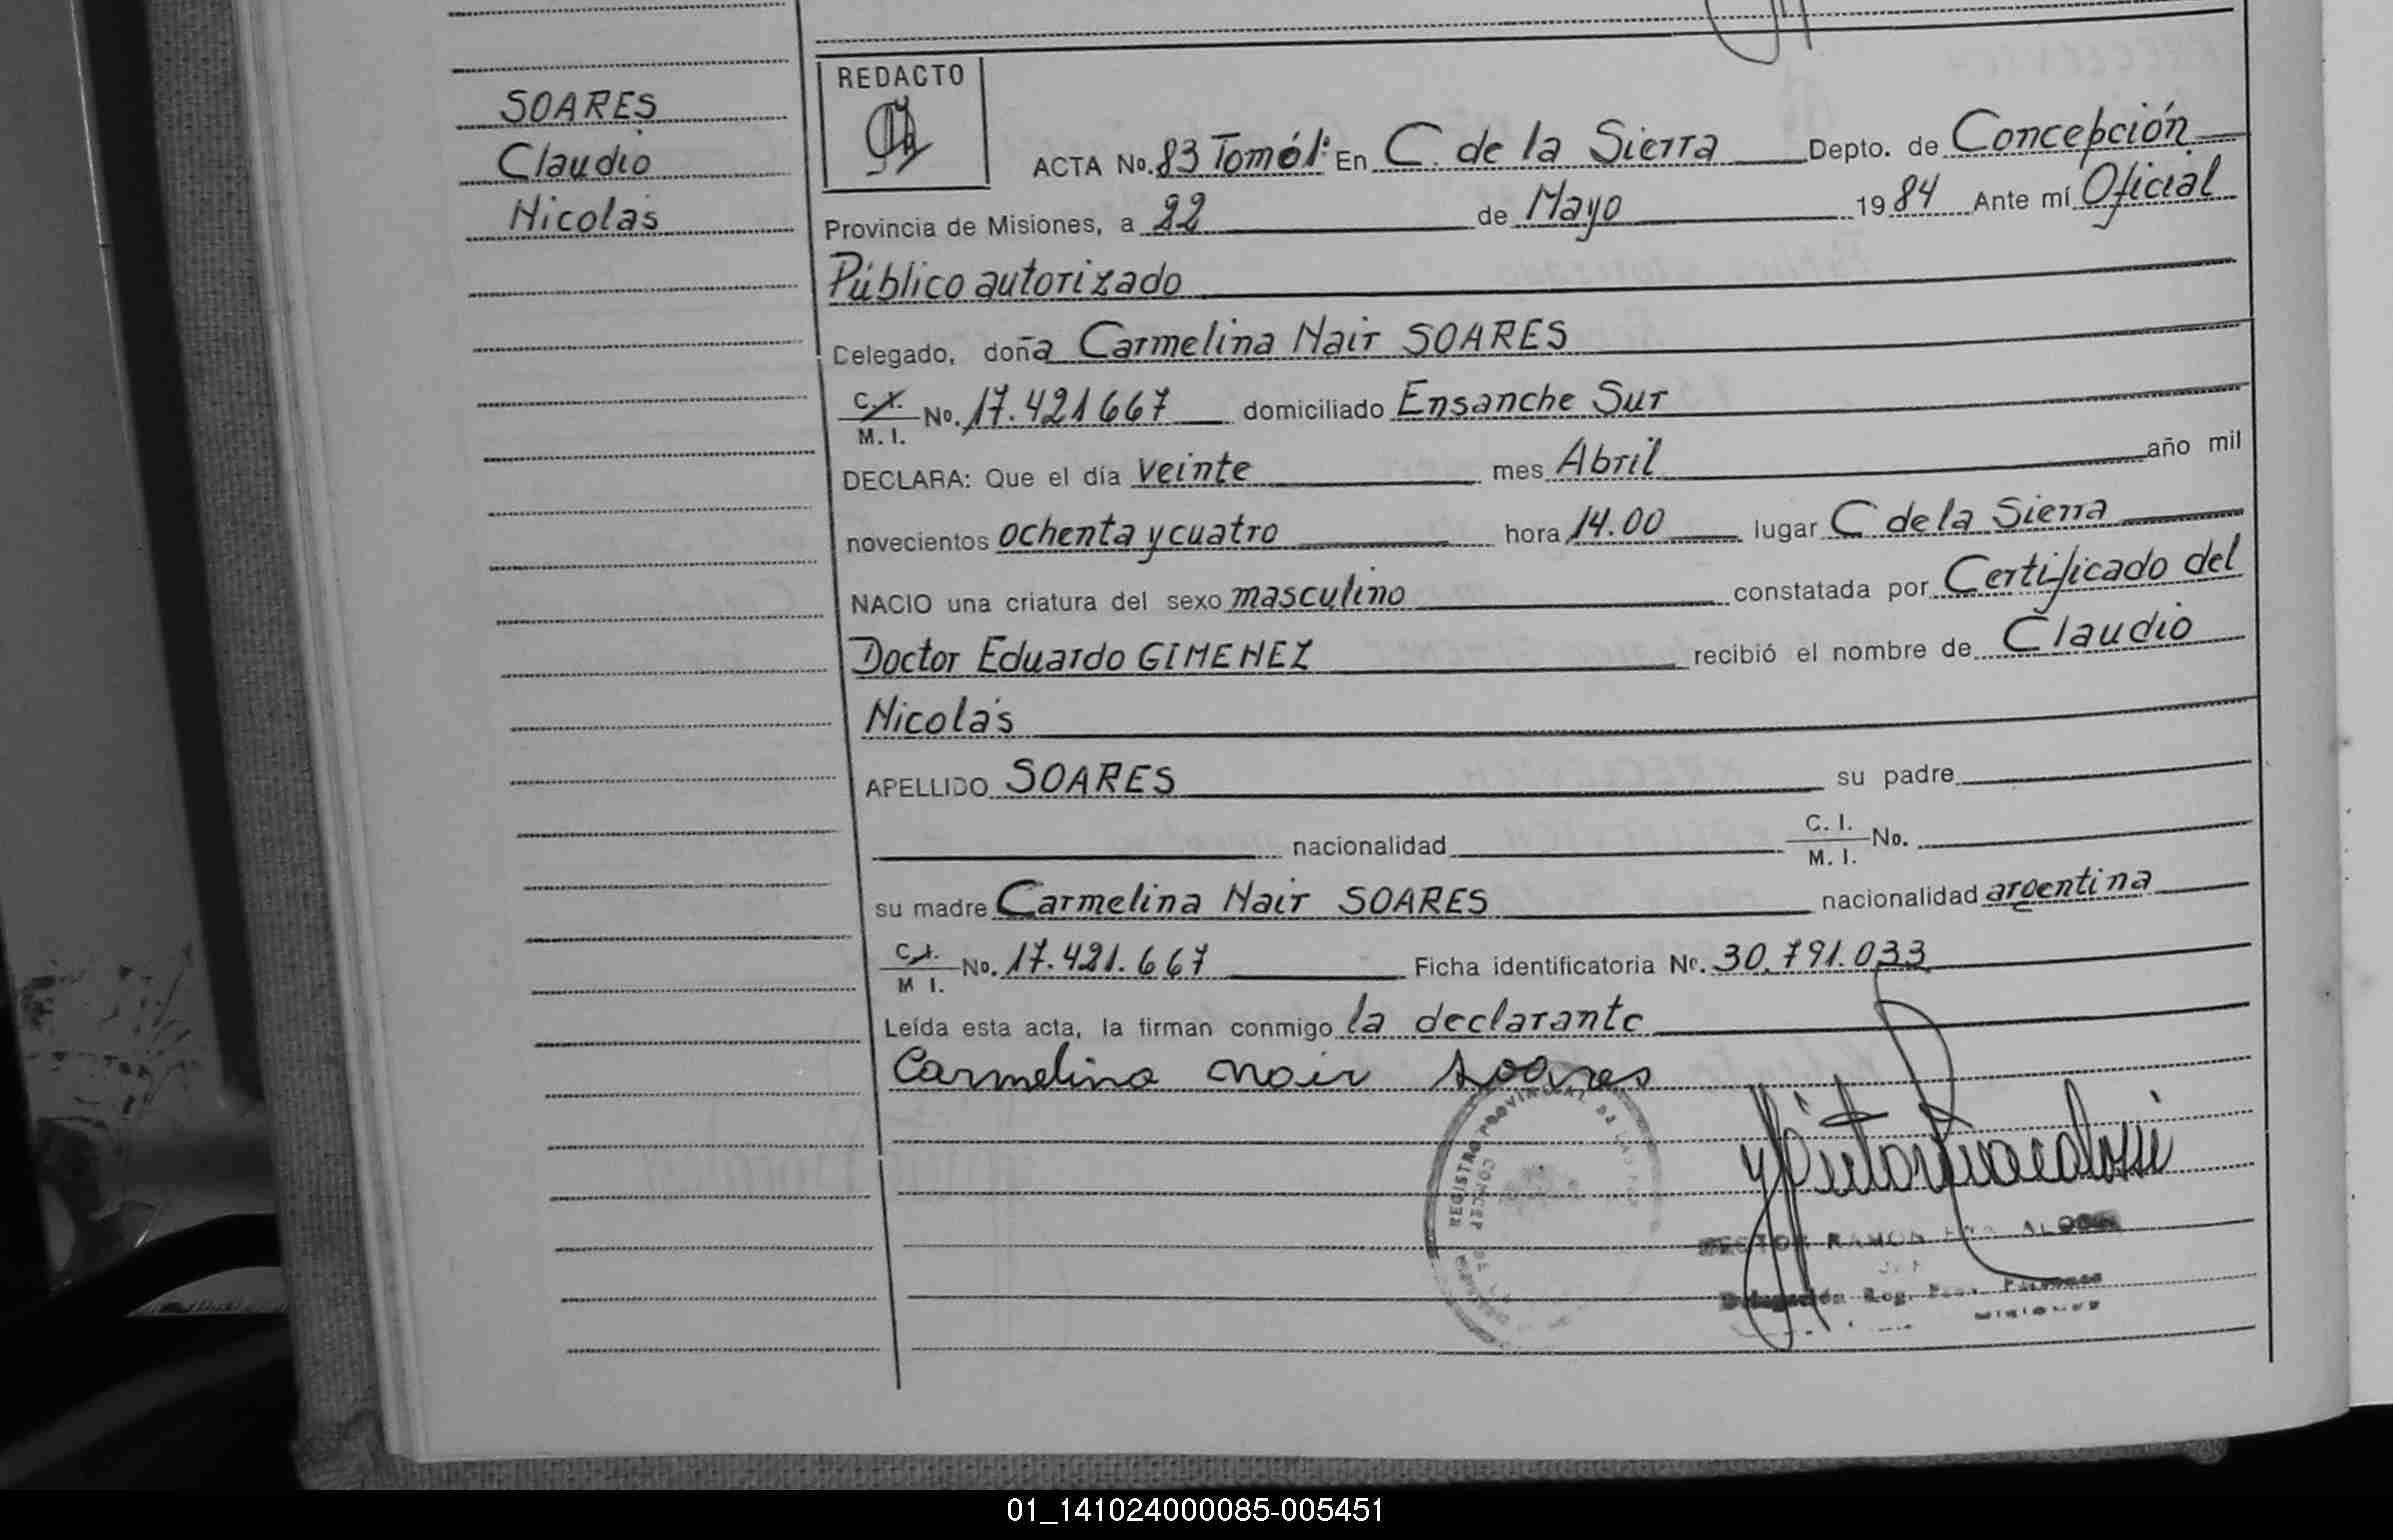 SOARES
Claudio
Nicolás
REDACTO
ACTA No. 83 Tomó I: En C. de la Sierra Depto. de Concepción
Provincia de Misiones, a 22 de Mayo 1984 Ante mí Oficial
Público autorizado
Celegado, doña Carmelina Nair SOARES
C. I. M. I. No. 17.421667 domiciliado Ensanche Sur
DECLARA: Que el día veinte mes Abril año mil
novecientos ochenta y cuatro hora 14.00 lugar C de la Sierra
NACIO una criatura del sexo masculino constatada por Certificado del
Doctor Eduardo GIMENEZ recibió el nombre de Claudio
Nicolás
APELLIDO SOARES su padre
nacionalidad C. I. M. I. No.
su madre Carmelina Nair SOARES nacionalidad argentina
C. I. M I. No. 17.421.667 Ficha identificatoria No. 30.791.033
Leída esta acta, la firman conmigo la declarante
Carmelina Nair Soares
REGISTRO PROVINCIAL DE LAS
RAMON
Delegación Reg.
MISIONES
01_141024000085-005451